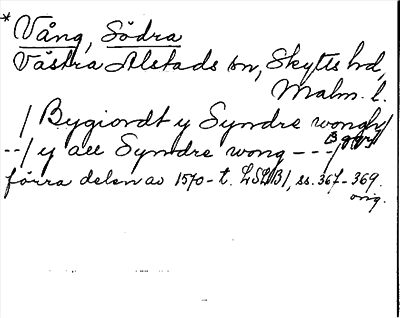 * Vång, Södra
Västra Alstads sn, Skytts hd,
Malm. l.
/ Bygiordt y Syndre wongh /
--/ y all Syndre wong ---/
förra delen av 1570-t. LSLB1, ss. 367-369.
orig.